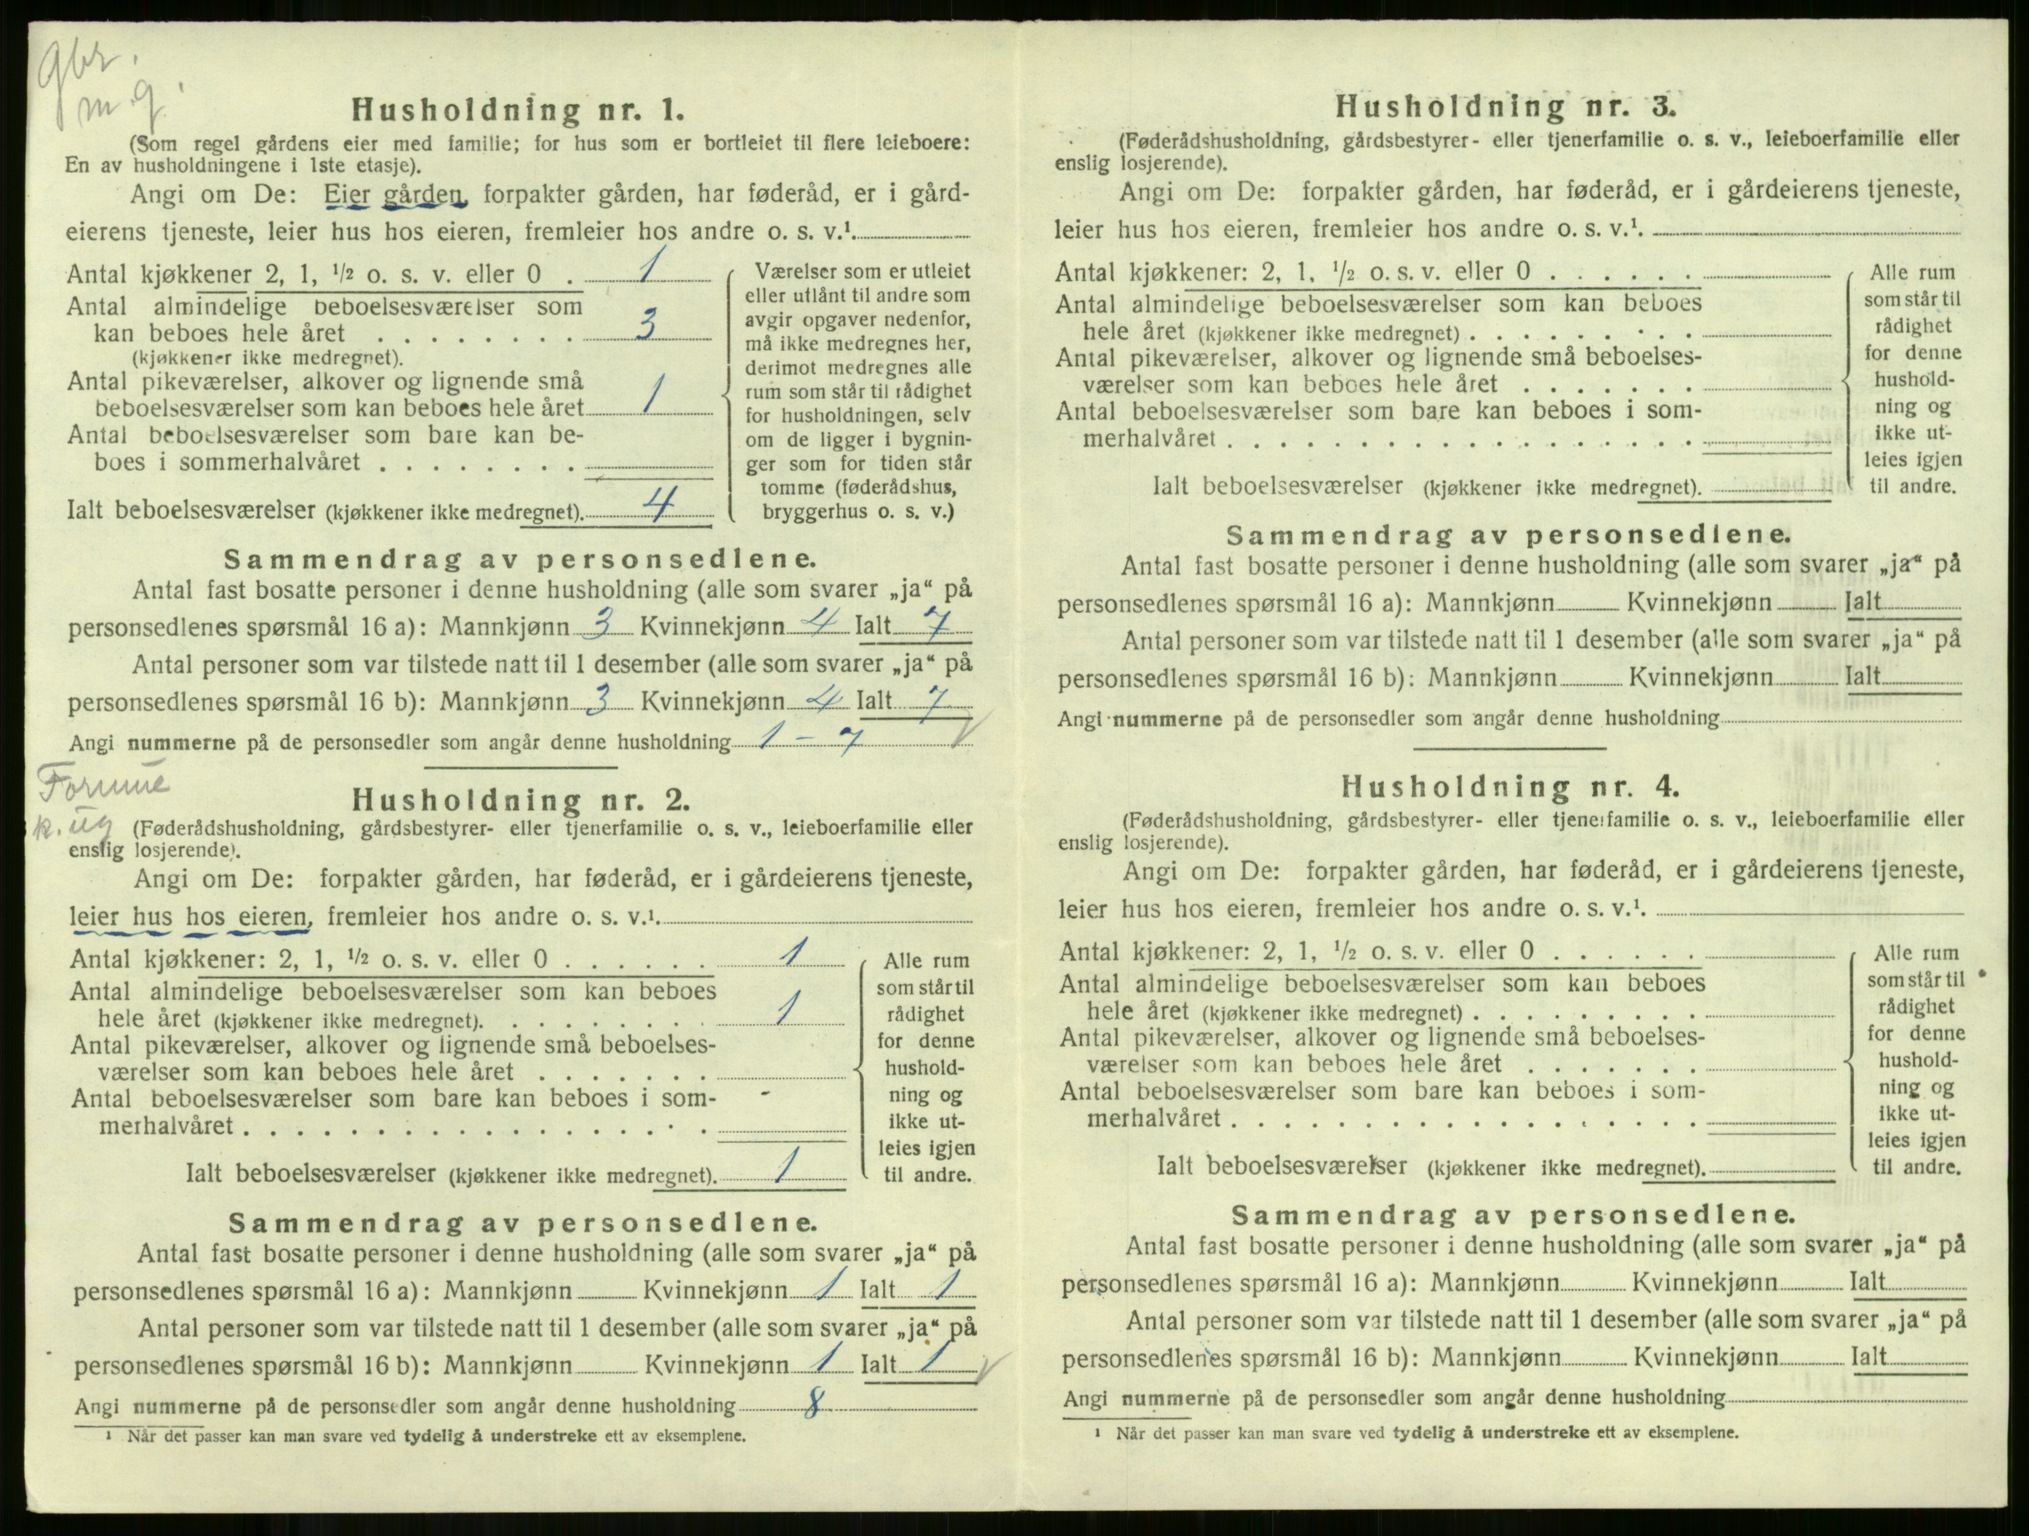 gbr.
m. g.
Husholdning nr. 1.
(Som regel gårdens eier med familie; for hus som er bortleiet til flere leieboere:
En av husholdningene i 1ste etasje).
Angi om De: Eier gården, forpakter gården, har føderåd, er i gård-
eierens tjeneste, leier hus hos eieren, fremleier hos andre o. s. v.¹.
Antal kjøkkener 2, 1, ½ o. s. v. eller 0 . 1
Antal almindelige beboelsesværelser som
kan beboes hele året . . . . . . . . 3
(kjøkkener ikke medregnet).
Antal pikeværelser, alkover og lignende små
beboelsesværelser som kan beboes hele året 1
Antal beboelsesværelser som bare kan be-
boes i sommerhalvåret . . . . . . . .
Ialt beboelsesværelser (kjøkkener ikke medregnet). 4
Værelser som er utleiet
eller utlånt til andre som
avgir opgaver nedenfor,
må ikke medregnes her,
derimot medregnes alle
rum som står til rådighet
for husholdningen, selv
om de ligger i bygnin-
ger som for tiden står
tomme (føderådshus,
bryggerhus o. s. v.)
Sammendrag av personsedlene.
Antal fast bosatte personer i denne husholdning (alle som svarer „ja“ på
personsedlenes spørsmål 16 a): Mannkjønn 3 Kvinnekjønn 4 Ialt 7
Antal personer som var tilstede natt til 1 desember (alle som svarer „ja“ på
personsedlenes spørsmål 16 b): Mannkjønn 3 Kvinnekjønn 4 Ialt 7
Angi nummerne på de personsedler som angår denne husholdning 1 - 7
Formue
k. ug
Husholdning nr. 2.
(Føderådshusholdning, gårdsbestyrer- eller tjenerfamilie o. s. v., leieboerfamilie eller
enslig losjerende).
Angi om De: forpakter gården, har føderåd, er i gårdeierens tjeneste,
leier hus hos eieren, fremleier hos andre o. s. v.¹.
Antal kjøkkener: 2, 1, ½ o. s. v. eller 0 . . . . . . 1
Antal almindelige beboelsesværelser som kan beboes
hele året (kjøkkener ikke medregnet). . . . . . . . . 1
Antal pikeværelser, alkover og lignende små beboelses-
værelser som kan beboes hele året . . . . . . .
Antal beboelsesværelser som bare kan beboes i som- -
merhalvåret . . . . . . . . . . . . . . . . . .
Ialt beboelsesværelser (kjøkkener ikke medregnet). 1
Alle rum
som står til
rådighet
for denne
hushold-
ning og
ikke ut-
leies igjen
til andre.
Sammendrag av personsedlene.
Antal fast bosatte personer i denne husholdning (alle som svarer „ja“ på
personsedlenes spørsmål 16 a): Mannkjønn Kvinnekjønn 1 Ialt 1
Antal personer som var tilstede natt til 1 desember (alle som svarer „ja“ på
personsedlenes spørsmål 16 b): Mannkjønn Kvinnekjønn 1 Ialt 1
Angi nummerne på de personsedler som angår denne husholdning 8
¹ Når det passer kan man svare ved tydelig å understreke ett av eksemplene.
Husholdning nr. 3.
(Føderådshusholdning, gårdsbestyrer- eller tjenerfamilie o. s. v., leieboerfamilie eller
enslig losjerende).
Angi om De: forpakter gården, har føderåd, er i gårdeierens tjeneste,
leier hus hos eieren, fremleier hos andre o. s. v.¹.
Antal kjøkkener: 2, 1, ½ o. s. v. eller 0 . . . . . .
Antal almindelige beboelsesværelser som kan beboes
hele året (kjøkkener ikke medregnet) . . . . . . . . .
Antal pikeværelser, alkover og lignende små beboelses-
værelser som kan beboes hele året . . . . . . .
Antal beboelsesværelser som bare kan beboes i som-
merhalvåret . . . . . . . . . . . . . . . . . .
Ialt beboelsesværelser (kjøkkener ikke medregnet).
Alle rum
som står til
rådighet
for denne
hushold-
ning og
ikke ut-
leies igjen
til andre.
Sammendrag av personsedlene.
Antal fast bosatte personer i denne husholdning (alle som svarer „ja“ på
personsedlenes spørsmål 16 a): Mannkjønn Kvinnekjønn Ialt
Antal personer som var tilstede natt til 1 desember (alle som svarer „ja“ på
personsedlenes spørsmål 16 b): Mannkjønn Kvinnekjønn Ialt
Angi nummerne på de personsedler som angår denne husholdning
Husholdning nr. 4.
(Føderådshusholdning, gårdsbestyrer- eller tjenerfamilie o. s. v., leieboerfamilie eller
enslig losjerende).
Angi om De: forpakter gården, har føderåd, er i gårdeierens tjeneste,
leier hus hos eieren, fremleier hos andre o. s. v.¹.
Antal kjøkkener: 2, 1, ½ o. s. v. eller 0 . . . . . .
Antal almindelige beboelsesværelser som kan beboes
hele året (kjøkkener ikke medregnet) . . . . . . . . .
Antal pikeværelser, alkover og lignende små beboelses-
værelser som kan beboes hele året . . . . . . .
Antal beboelsesværelser som bare kan beboes i som-
merhalvåret . . . . . . . . . . . . . . . . . .
Ialt beboelsesværelser (kjøkkener ikke medregnet).
Alle rum
som står til
rådighet
for denne
hushold-
ning og
ikke ut-
leies igjen
til andre.
Sammendrag av personsedlene.
Antal fast bosatte personer i denne husholdning (alle som svarer „ja“ på
personsedlenes spørsmål 16 a): Mannkjønn Kvinnekjønn Ialt
Antal personer som var tilstede natt til 1 desember (alle som svarer „ja“ på
personsedlenes spørsmål 16 b): Mannkjønn Kvinnekjønn Ialt
Angi nummerne på de personsedler som angår denne husholdning
¹ Når det passer kan man svare ved tydelig å understreke ett av eksemplene.